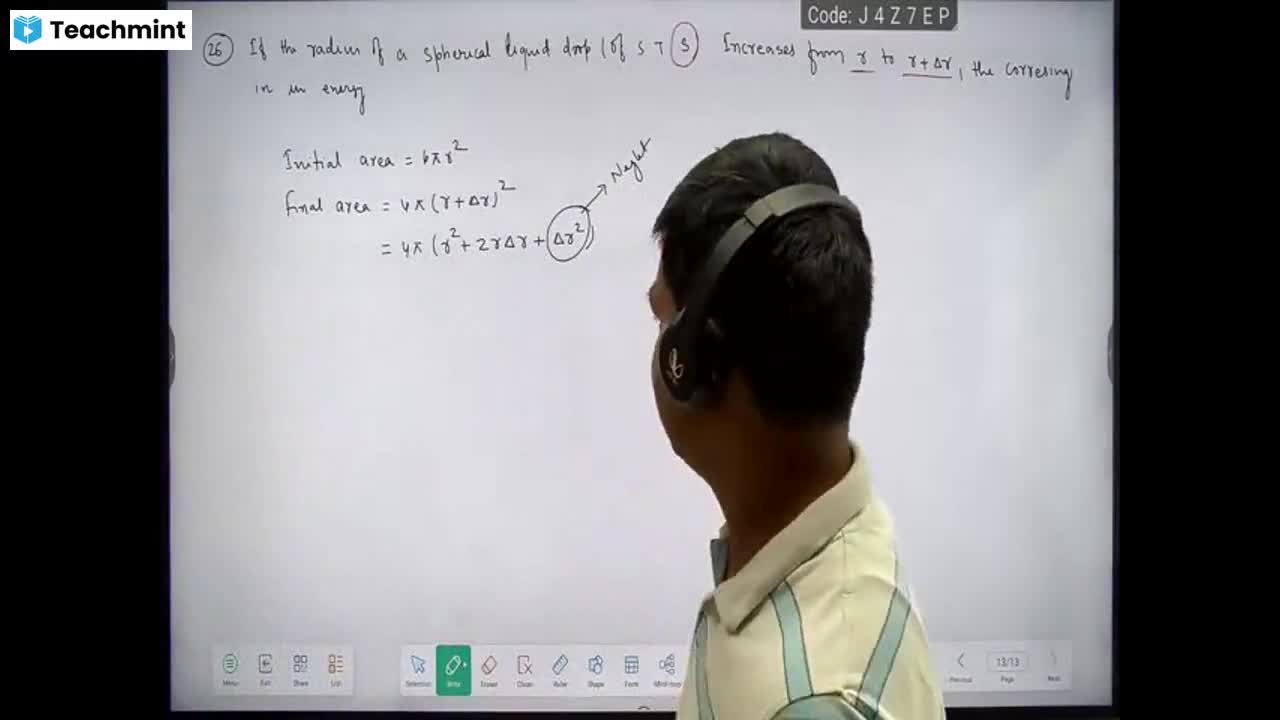 Teachmint
Code: J 4 Z 7 E P
26 If the radius of a spherical liquid drop (of S T S) Increases from r to r + Δr, the corresing
in energy
Initial area = 4πr²
final area = 4π (r + Δr)²
= 4π (r² + 2rΔr + Δr²)
Neglct
Menu
Exit
Share
List
Selection
Write
Eraser
Clean
Ruler
Shape
Form
Mind map
Previous
13/13
Page
Next